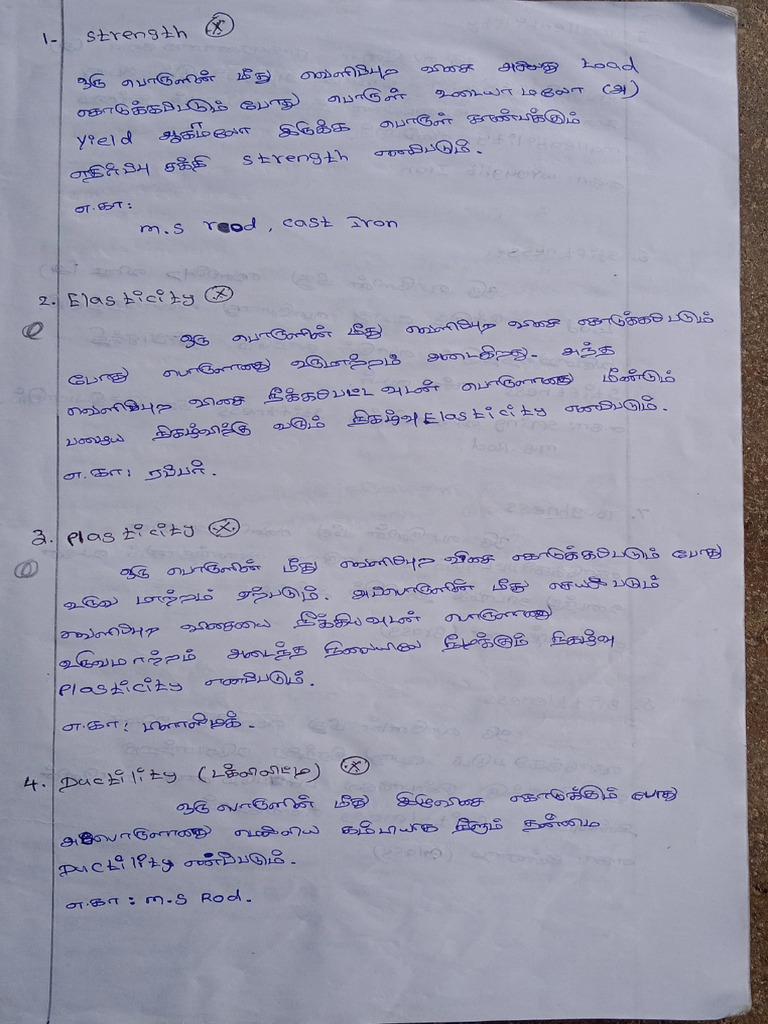 1. Strength
ஒரு பொருளின் மீது வெளிப்புற விசை அல்லது Load
கொடுக்கப்படும் போது பொருள் உடையாமலோ (அ)
yield ஆகாமலோ இருக்க பொருள் காண்பிக்கும்
எதிர்ப்பு சக்தி strength எனப்படும்.
எ.கா:
m.s rod, cast Iron
2. Elasticity
ஒரு பொருளின் மீது வெளிப்புற விசை கொடுக்கப்படும்
போது பொருளானது உருமாற்றம் அடைகிறது. அந்த
வெளிப்புற விசை நீக்கப்பட்டவுடன் பொருளானது மீண்டும்
பழைய நிகழ்விற்கு வரும் நிகழ்வு Elasticity எனப்படும்.
எ.கா: ரப்பர்.
3. Plasticity
ஒரு பொருளின் மீது வெளிப்புற விசை கொடுக்கப்படும் போது
உருவ மாற்றம் ஏற்படும். அப்பொருளின் மீது செயல்படும்
வெளிப்புற விசையை நீக்கியவுடன் பொருளானது
உருவமாற்றம் அடைந்த நிலையிலே நீடிக்கும் நிகழ்வு
Plasticity எனப்படும்.
எ.கா: பிளாஸ்டிக்.
4. Ductility (டக்ளிலிட்டி)
ஒரு பொருளின் மீது இழுவிசை கொடுக்கும் போது
அப்பொருளானது மெல்லிய கம்பியாக நீளும் தன்மை
Ductility எனப்படும்.
எ.கா: m.s Rod.